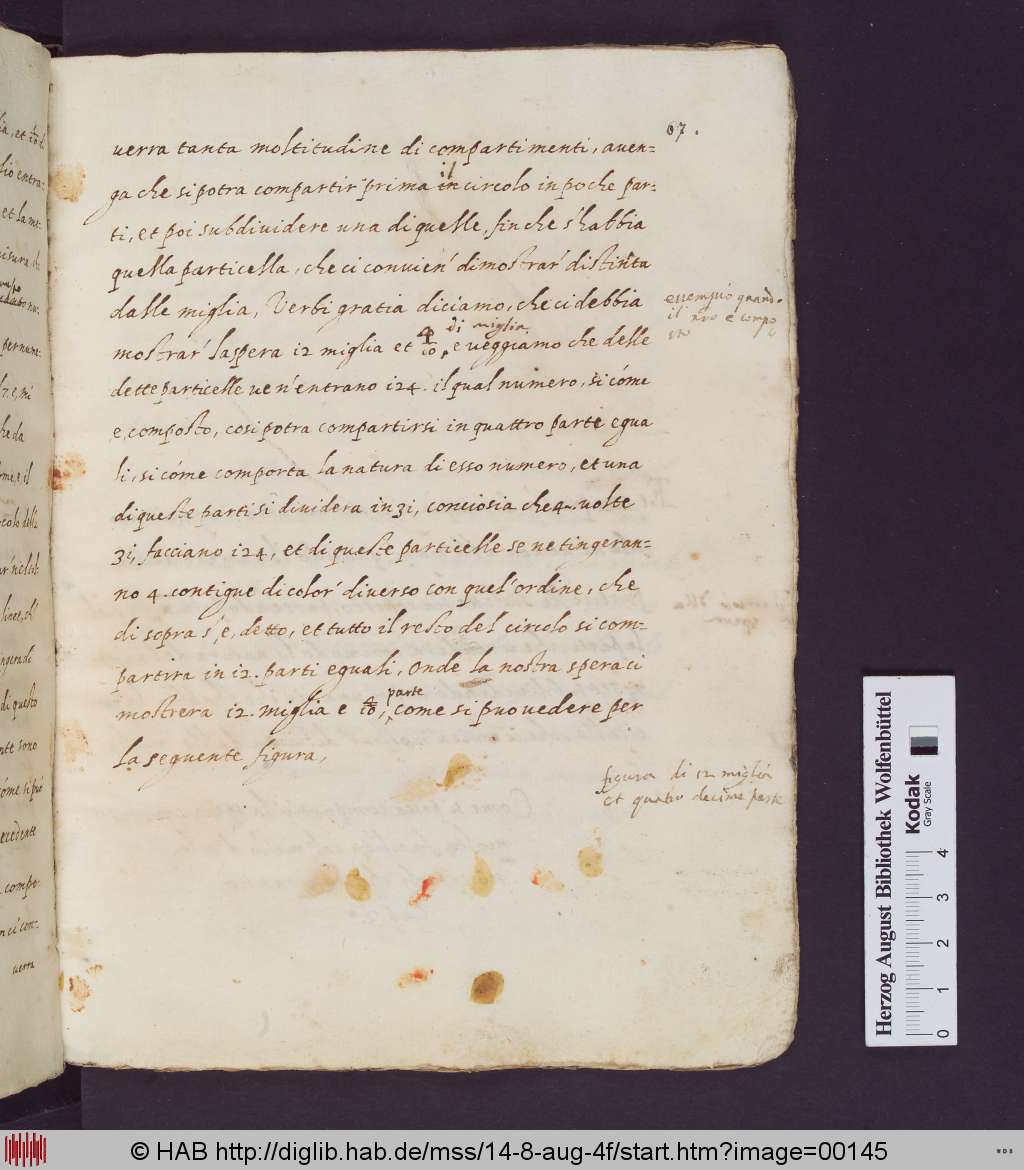 67.
uerra tanta moltitudine di compartimenti, auen=
ga che si potra compartir prima il circolo in poche par=
ti, et poi subdividere una di quelle, finche s'habbia
quella particella, che ci convien' dimostrar' distinta
dalle miglia, Verbi gratia diciamo, che ci debbia
essempio quand.
il nro e compo
sto
di miglia
mostrar' la spera i2 miglia et 4/10, e veggiamo che delle
dette particelle ue n'entrano i24. il qual numero, si cóme
e, composto, cosi potra compartirsi in quattro parte egua
li, si cóme comporta la natura di esso numero, et una
di queste parti si dividera in 3i, conciosia che 4. uolte
3i, facciano i24, et di queste particelle se ne tingeran=
no 4. contigue di color' diverso con quel' ordine, che
di sopra s', e, detto, et tutto il resto del circolo si com=
partira in i2. parti eguali, onde la nostra spera ci
parte
mostrera i2. miglia e 4/10, come si puo vedere per
la seguente figura,
figura di 12 miglia
et quatro decime parte
Herzog August Bibliothek Wolfenbüttel
Kodak
Gray Scale
0 1 2 3 4
© HAB http://diglib.hab.de/mss/14-8-aug-4f/start.htm?image=00145